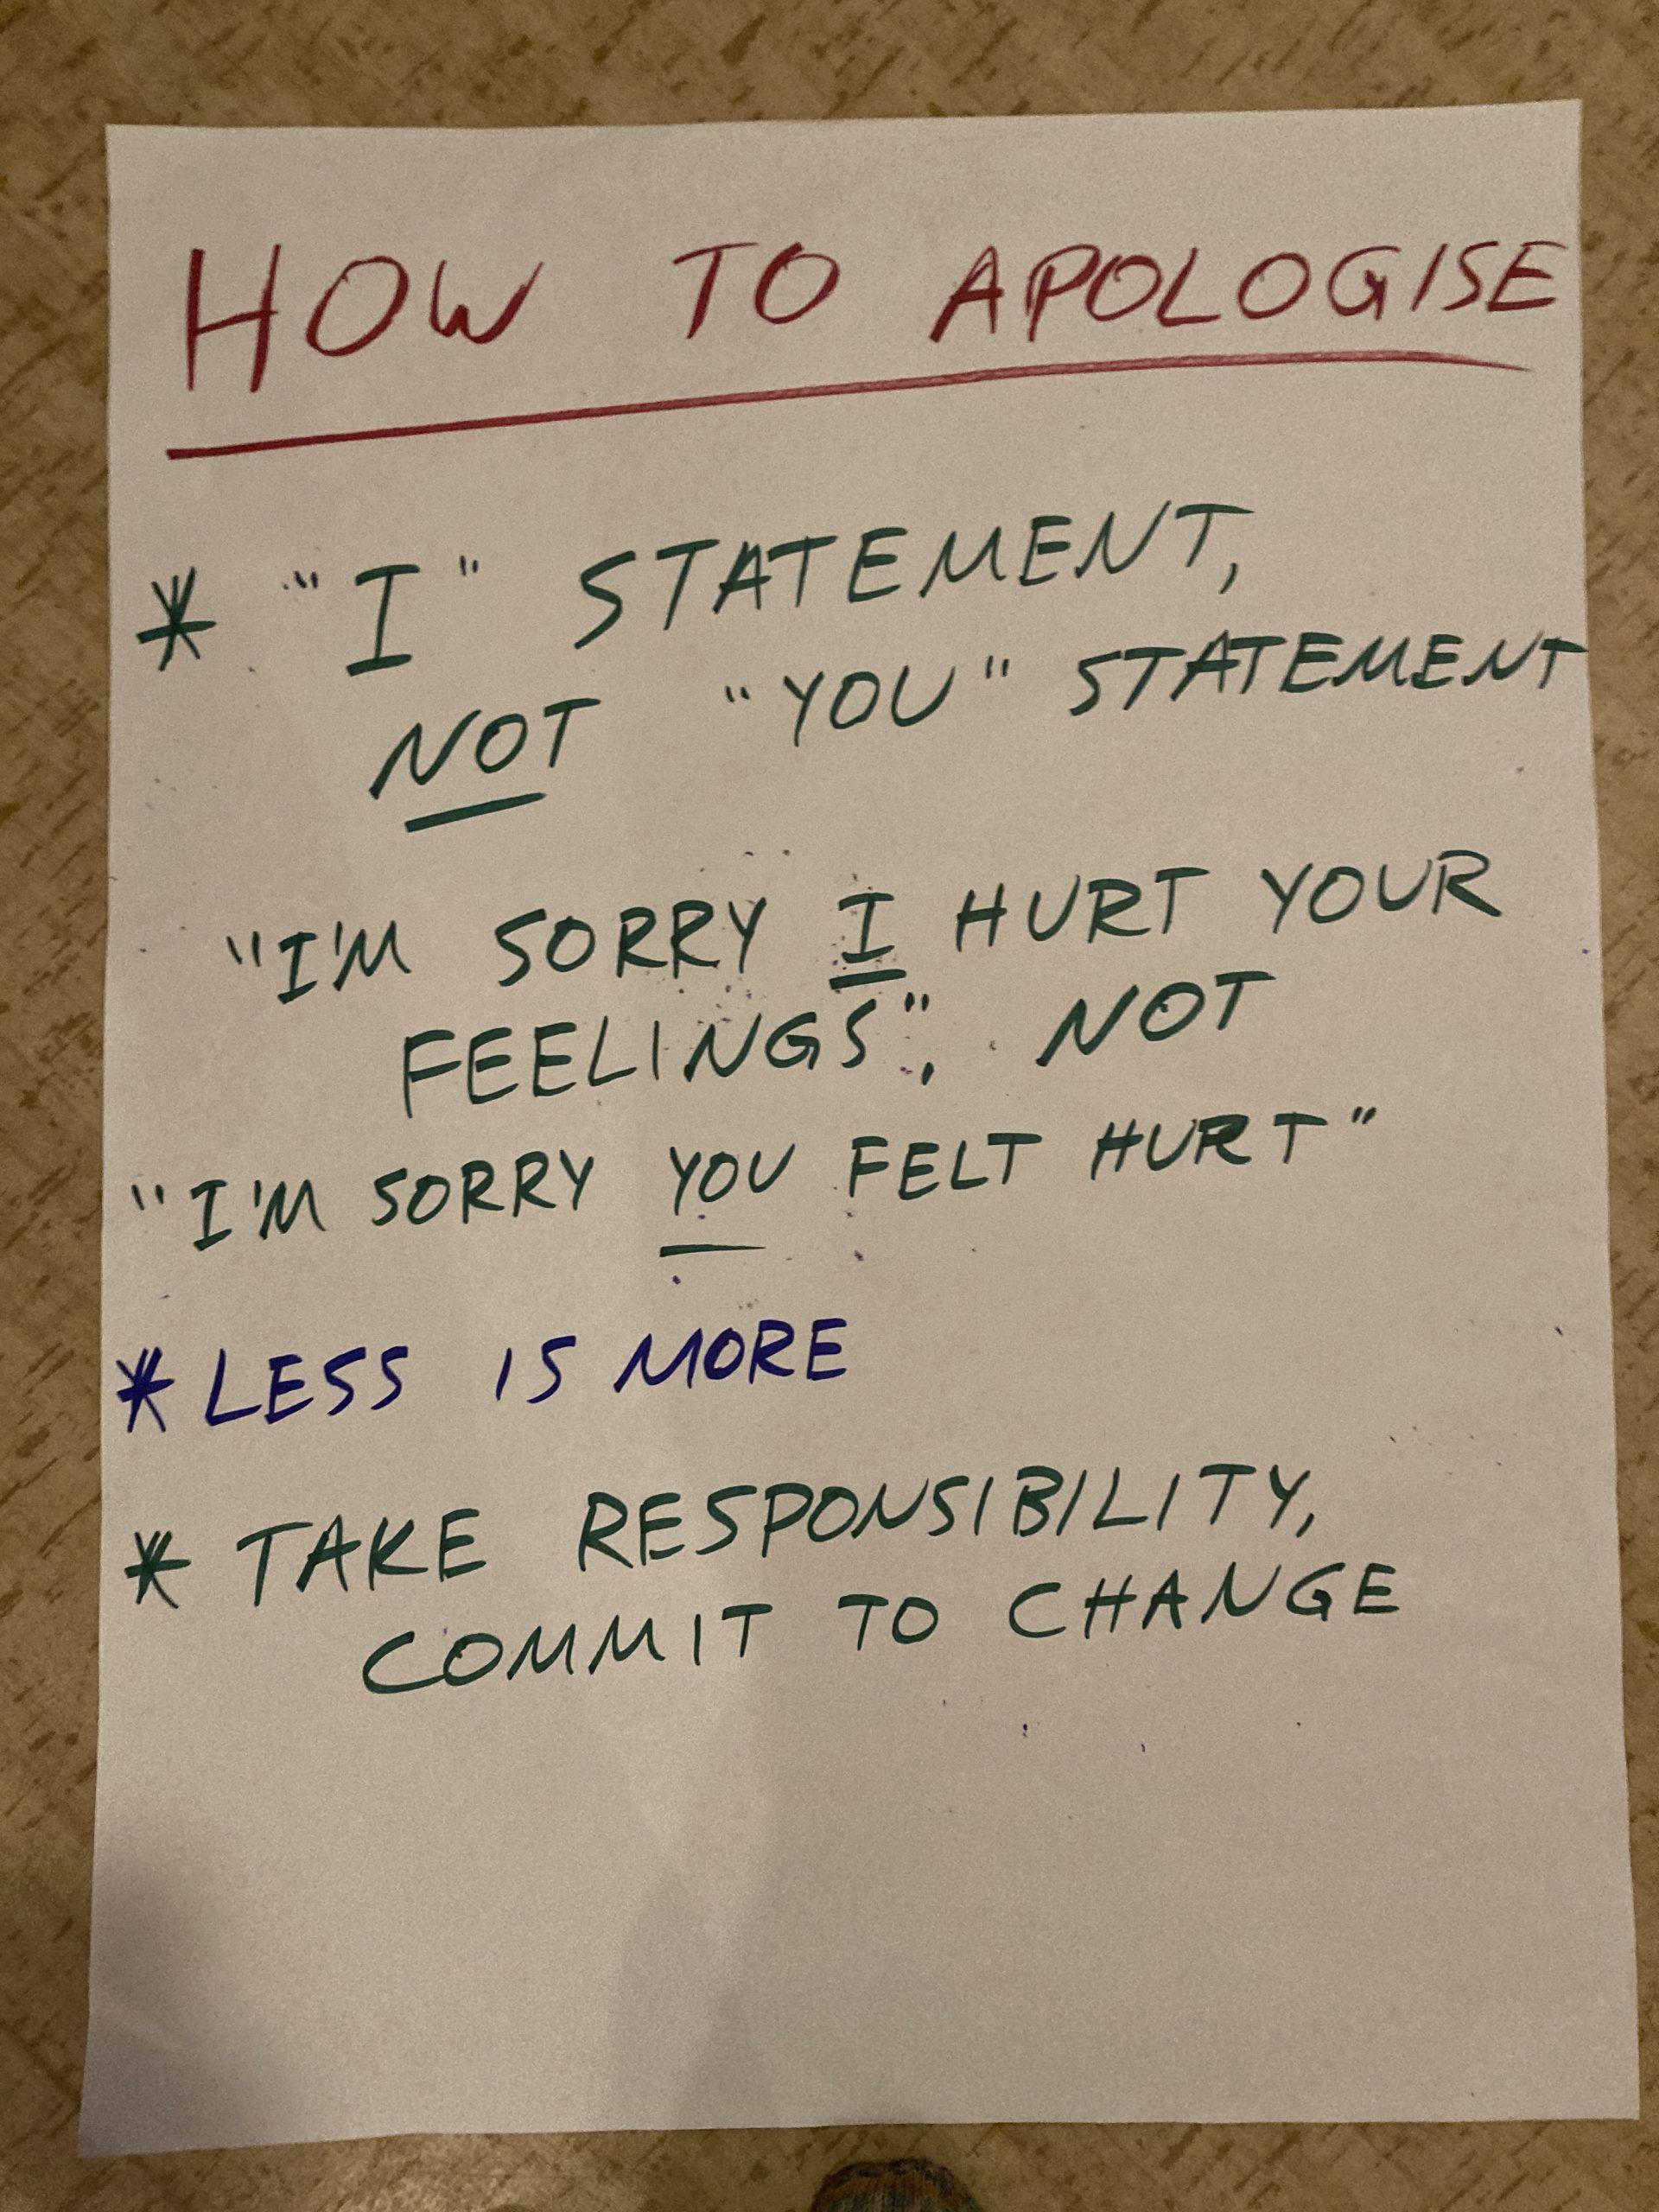 HOW TO APOLOGISE
* "I" STATEMENT,
NOT "YOU" STATEMENT
"I'M SORRY I HURT YOUR
FEELINGS", NOT
"I'M SORRY YOU FELT HURT"
* LESS IS MORE
* TAKE RESPONSIBILITY,
COMMIT TO CHANGE